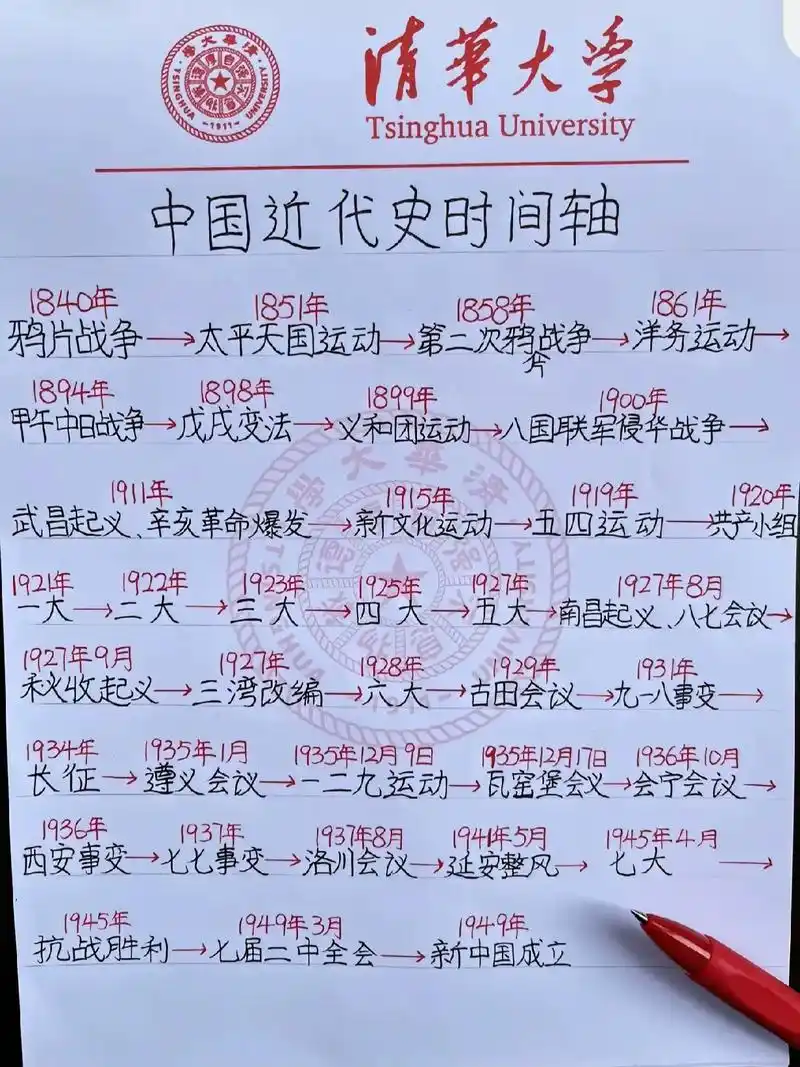 清華大學
Tsinghua University
清華大學
TSINGHUA UNIVERSITY
自强不息
厚德载物
-1911-
中国近代史时间轴
1840年 1851年 1858年 1861年
鸦片战争→太平天国运动→第二次鸦片战争→洋务运动→
1894年 1898年 1899年 1900年
甲午中日战争→戊戌变法→义和团运动→八国联军侵华战争→
1911年 1915年 1919年 1920年
武昌起义、辛亥革命爆发→新文化运动→五四运动→共产小组
1921年 1922年 1923年 1925年 1927年 1927年8月
一大→二大→三大→四大→五大→南昌起义、八七会议→
1927年9月 1927年 1928年 1929年 1931年
秋收起义→三湾改编→六大→古田会议→九一八事变→
1934年 1935年1月 1935年12月9日 1935年12月17日 1936年10月
长征→遵义会议→一二九运动→瓦窑堡会议→会宁会议→
1936年 1937年 1937年8月 1941年5月 1945年4月
西安事变→七七事变→洛川会议→延安整风→七大→
1945年 1949年3月 1949年
抗战胜利→七届二中全会→新中国成立